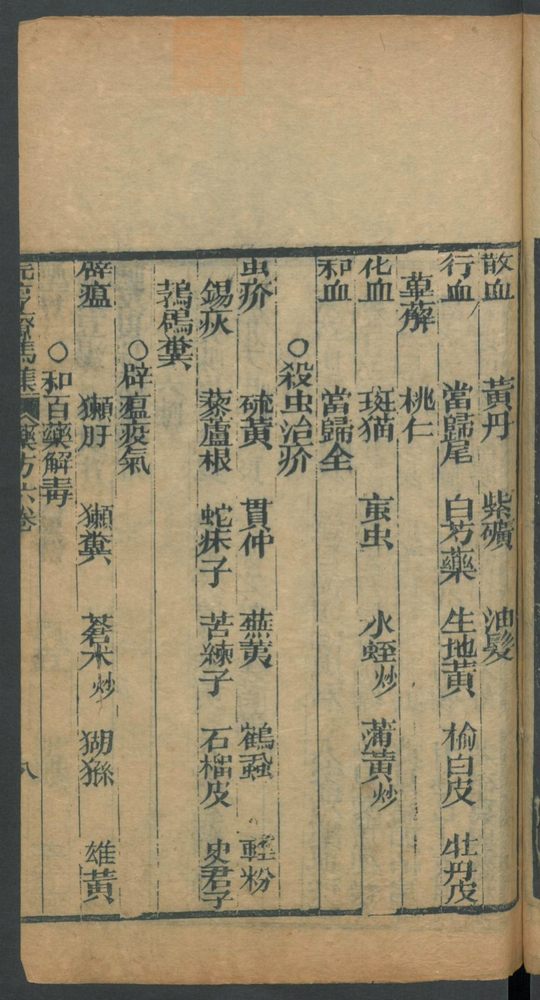 散血　黃丹　紫礦　油髮
行血　當歸尾　白芍藥　生地黃　榆白皮　牡丹皮
萆薢　桃仁
化血　斑猫　䖟虫　水蛭炒　蒲黃炒
和血　當歸全
○殺虫治疥
虫疥　硫黃　貫仲　蕪荑　鶴蝨　輕粉
錫灰　藜蘆根　蛇床子　苦練子　石榴皮　史君子
鵓鴿糞
○辟瘟疫氣
辟瘟　獺肝　獺糞　蒼朮炒　猢猻　雄黃
○和百藥解毒
療馬集　藥方六卷　八